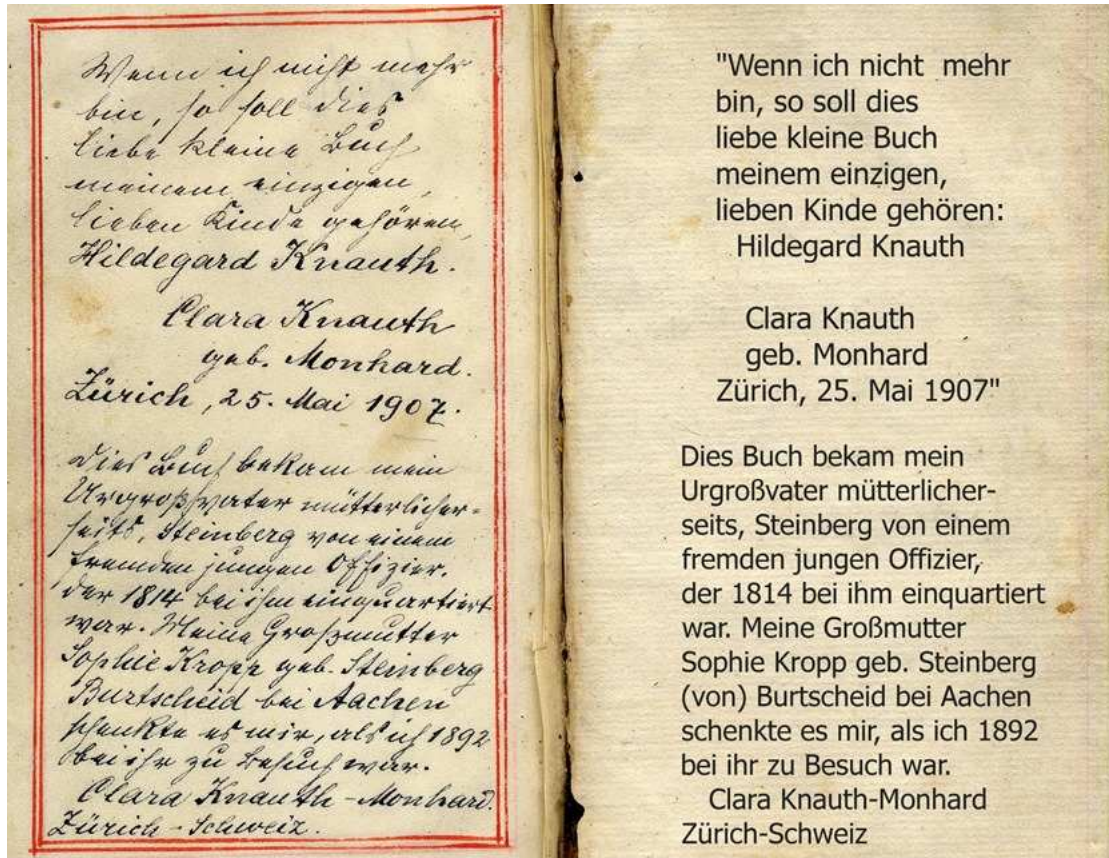 Wenn ich nicht mehr
bin, so soll dies
liebe kleine Buch
meinem einzigen,
lieben Kinde gehören,
Hildegard Knauth.
Clara Knauth
geb. Monhard.
Zürich, 25. Mai 1907.
Dies Buch bekam mein
Urgroßvater mütterlicher=
seits, Steinberg von einem
fremden jungen Offizier.
der 1814 bei ihm einquartiert
war. Meine Großmutter
Sophie Kropp geb. Steinberg
Burtscheid bei Aachen
schenkte es mir, als ich 1892
bei ihr zu Besuch war.
Clara Knauth-Monhard.
Zürich-Schweiz.
"Wenn ich nicht mehr
bin, so soll dies
liebe kleine Buch
meinem einzigen,
lieben Kinde gehören:
Hildegard Knauth
Clara Knauth
geb. Monhard
Zürich, 25. Mai 1907"
Dies Buch bekam mein
Urgroßvater mütterlicher-
seits, Steinberg von einem
fremden jungen Offizier,
der 1814 bei ihm einquartiert
war. Meine Großmutter
Sophie Kropp geb. Steinberg
(von) Burtscheid bei Aachen
schenkte es mir, als ich 1892
bei ihr zu Besuch war.
Clara Knauth-Monhard
Zürich-Schweiz